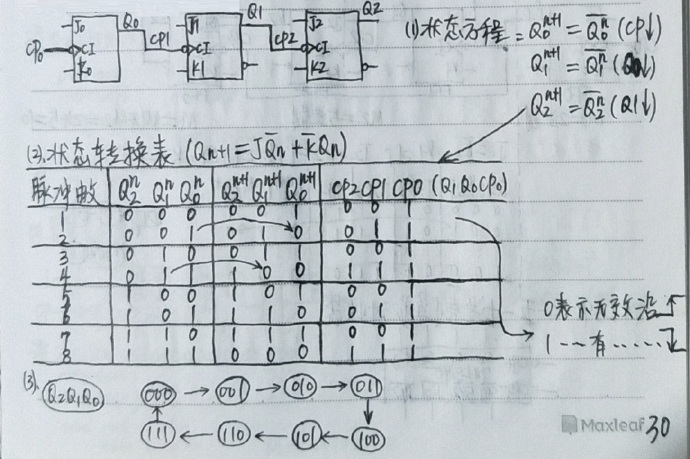 J0 Q0 J1 Q1 J2 Q2
CP0 CI CP1 CI CP2 CI
K0 K1 K2
(1)状态方程: Q0ⁿ⁺¹ = Q̅0ⁿ (CP↓)
Q1ⁿ⁺¹ = Q̅1ⁿ (Q0↓)
Q2ⁿ⁺¹ = Q̅2ⁿ (Q1↓)
(2).状态转换表 (Qn+1 = JQ̅n + K̅Qn)
脉冲数 Q2ⁿ Q1ⁿ Q0ⁿ Q2ⁿ⁺¹ Q1ⁿ⁺¹ Q0ⁿ⁺¹ CP2 CP1 CP0 (Q1 Q0 CP0)
1 0 0 0 0 0 1 0 0 1
2 0 0 1 0 1 0 0 1 1
3 0 1 0 0 1 1 0 0 1
4 0 1 1 1 0 0 1 1 1
5 1 0 0 1 0 1 0 0 1
6 1 0 1 1 1 0 0 1 1
7 1 1 0 1 1 1 0 0 1
8 1 1 1 0 0 0 1 1 1
0表示无效沿↑
1---有......↓
(3). Q2Q1Q0 000 → 001 → 010 → 011
111 ← 110 ← 101 ← 100
Maxleaf 30